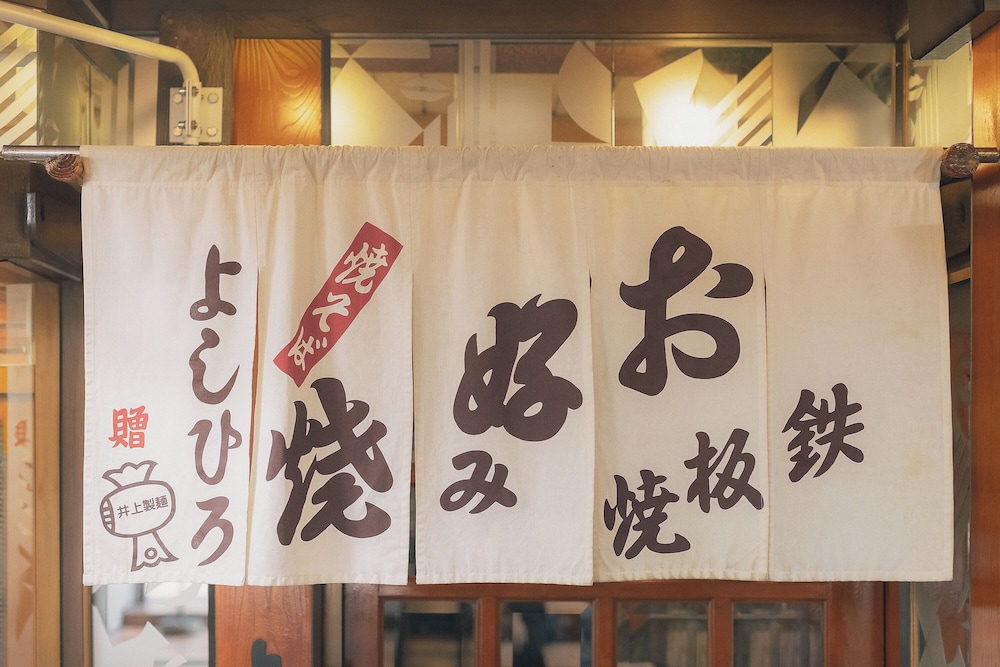 鉄板焼
お好み焼
焼そば
よしひろ
贈
井上製麺